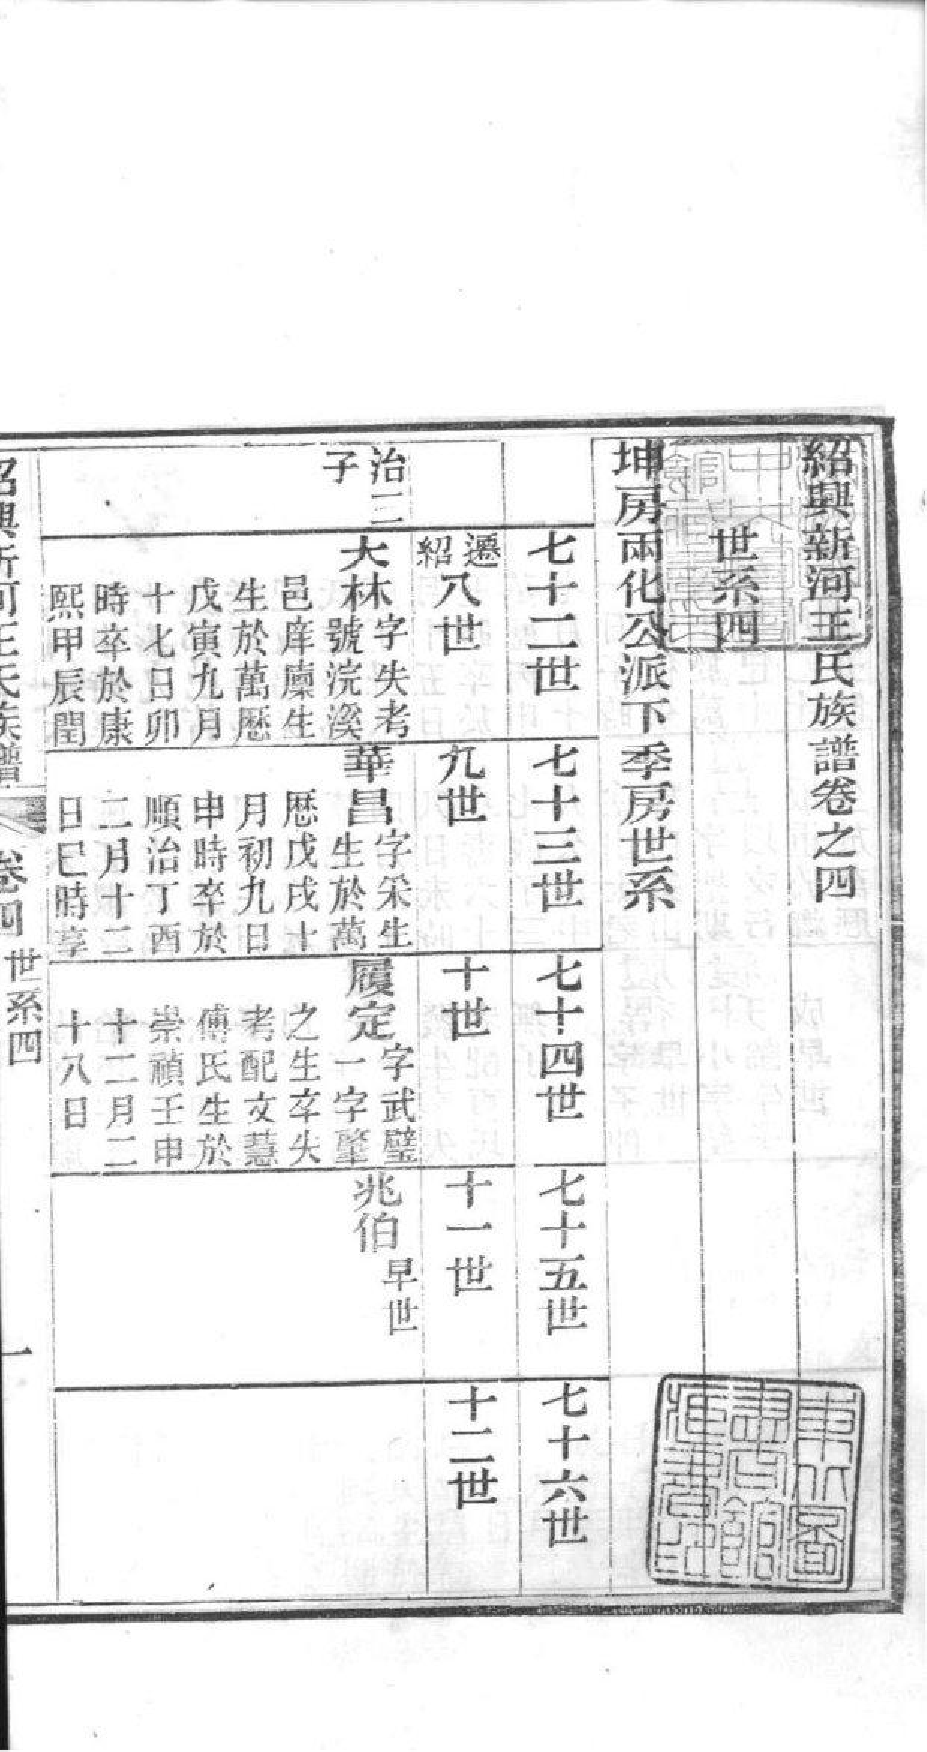 紹興新河王氏族譜卷之四
世系四
坤房兩化公派下季房世系
七十二世
七十三世
七十四世
七十五世
七十六世
遷紹八世
九世
十世
十一世
十二世
治二子
大林
字失考
號浣溪
邑庠廩生
生於萬歷
戊寅九月
十七日卯
時卒於康
熙甲辰閏
華昌
字采生
生於萬
歷戊戌十
月初九日
申時卒於
順治丁酉
二月十二
日巳時享
履定
字武璧
一字肇
之生卒失
考配文慧
傅氏生於
崇禎壬申
十二月二
十八日
兆伯
早世
紹興新河王氏族譜
卷四
世系四
一